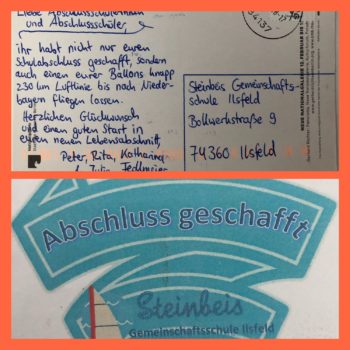 Liebe Abschlussschülerinnen
und Abschlussschüler,
ihr habt nicht nur euren
Schulabschluss geschafft, sondern
auch einen eurer Ballons knapp
230 km Luftlinie bis nach Nieder-
bayern fliegen lassen.
Herzlichen Glückwunsch
und einen guten Start in
euren neuen Lebensabschnitt
Peter, Rita, Katharina
Steinbeis Gemeinschafts-
schule Ilsfeld
Bollwerkstraße 9
74360 Ilsfeld
Abschluss geschafft
Steinbeis
Gemeinschaftsschule Ilsfeld